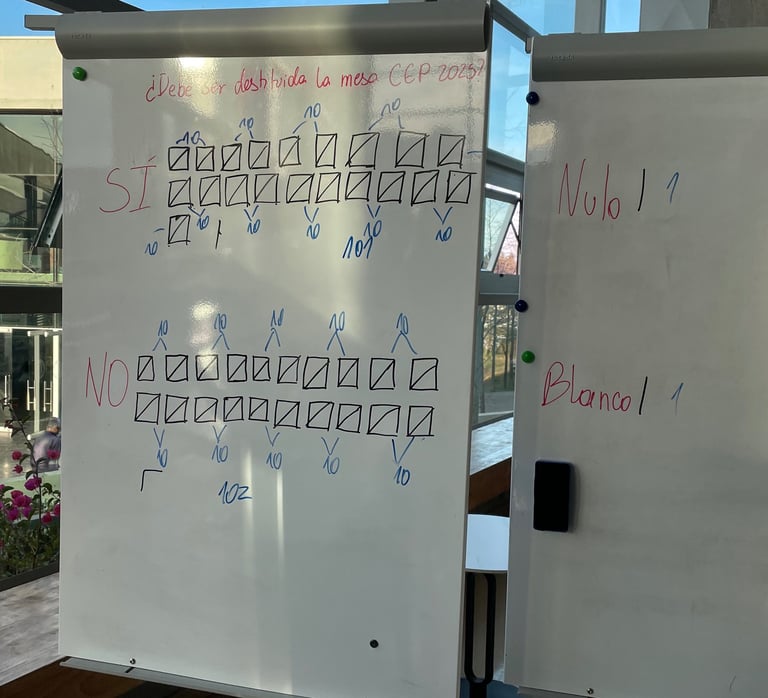 ¿Debe ser destituida la mesa CEP 2025?
10 10 10 10
SÍ
10 10 10 10 10 10
101
10 10 10 10 10
NO
10 10 10 10 10
102
Nulo | 1
Blanco | 1